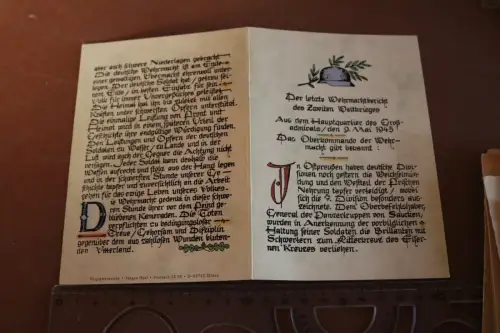 aber auch schwere Niederlagen gebracht.
Die deutsche Wehrmacht ist am Ende
einer gewaltigen Übermacht ehrenvoll unter-
legen. Der deutsche Soldat hat, getreu sei-
nem Eide, im Einsatz für sein
Volk für immer Unvergeßliches geleistet.
Die Heimat hat ihn bis zuletzt mit allen
Kräften unter schwersten Opfern unterstützt.
Die einmalige Leistung von Front und
Heimat wird in einem späteren Urteil der
Geschichte ihre endgültige Würdigung finden.
Den Leistungen und Opfern der deutschen
Soldaten zu Wasser, zu Lande und in der
Luft wird auch der Gegner die Achtung nicht
versagen. Jeder Soldat kann deshalb die
Waffen aufrecht und stolz aus der Hand legen
und in der schwersten Stunde unserer Ge-
schichte tapfer und zuversichtlich an die Arbeit
gehen für das ewige Leben unseres Volkes.
Die Wehrmacht gedenkt in dieser schwe-
ren Stunde ihrer vor dem Feind ge-
bliebenen Kameraden. Die Toten
verpflichten zu bedingungsloser
Treue, Gehorsam und Disziplin
gegenüber dem aus zahllosen Wunden bluten-
den Vaterland.
Der letzte Wehrmachtbericht
des Zweiten Weltkrieges
Aus dem Hauptquartier des Groß-
admirals, den 9. Mai 1945
Das Oberkommando der Wehr-
macht gibt bekannt:
In Ostpreußen haben deutsche Divi-
sionen noch gestern die Weichselmündung
und den Westteil der Frischen
Nehrung tapfer verteidigt, wobei
sich die 7. Division besonders aus-
zeichnete. Dem Oberbefehlshaber,
General der Panzertruppen von Saucken,
wurden in Anerkennung der vorbildlichen
Haltung seiner Soldaten die Brillanten mit
Schwertern zum Ritterkreuz des Eiser-
nen Kreuzes verliehen.